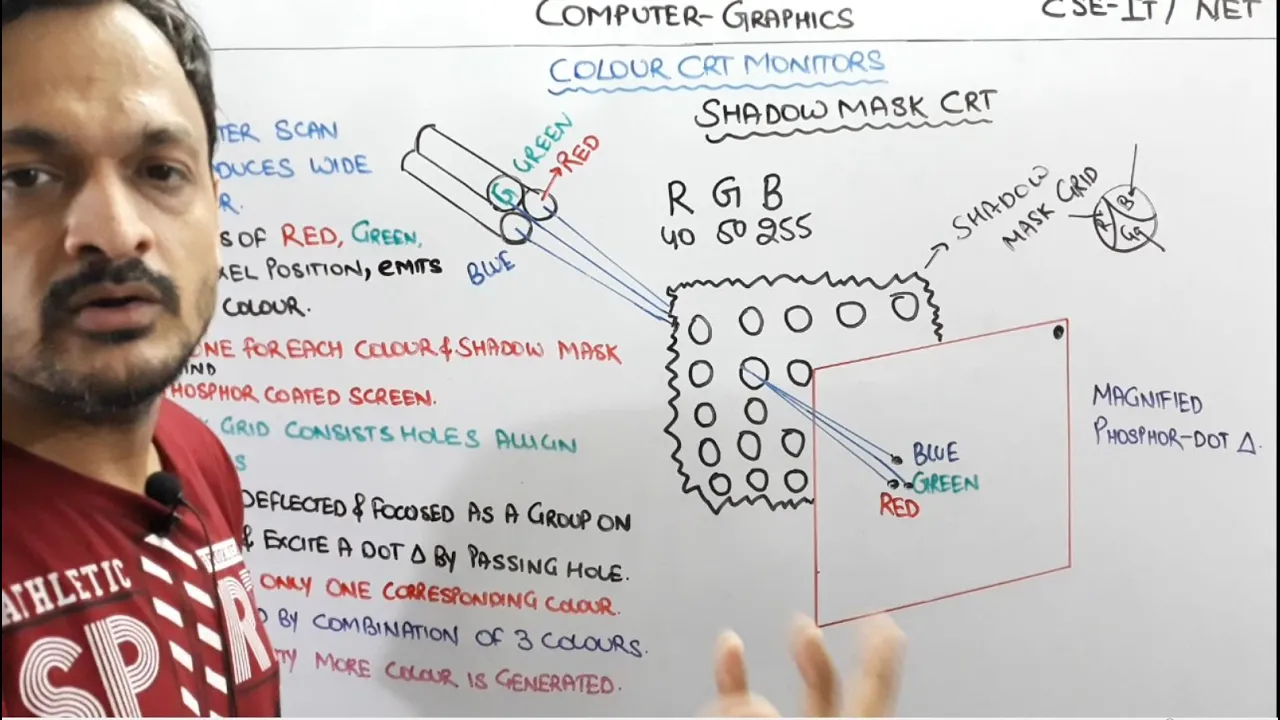 COMPUTER-GRAPHICS
CSE-IT/ NET
COLOUR CRT MONITORS
SHADOW MASK CRT
TER SCAN
DUCES WIDE
R.
S OF RED, GREEN,
XEL POSITION, EMITS
COLOUR.
ONE FOR EACH COLOUR & SHADOW MASK
IND
PHOSPHOR COATED SCREEN.
K GRID CONSISTS HOLES ALLIGN
S
DEFLECTED & FOCUSED AS A GROUP ON
& EXCITE A DOT Δ BY PASSING HOLE.
ONLY ONE CORRESPONDING COLOUR.
D BY COMBINATION OF 3 COLOURS.
TY MORE COLOUR IS GENERATED.
G GREEN
RED
BLUE
R G B
40 50 255
SHADOW
MASK GRID
R B
G
BLUE
GREEN
RED
MAGNIFIED
PHOSPHOR-DOT Δ.
ATHLETIC
SP R